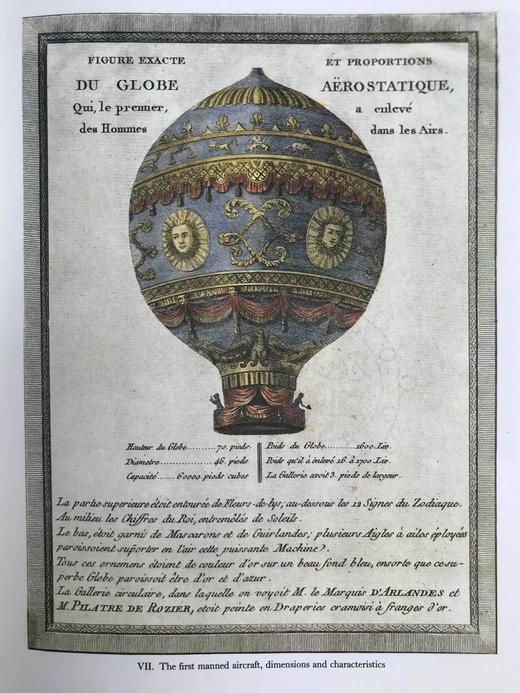 FIGURE EXACTE ET PROPORTIONS
DU GLOBE AËROSTATIQUE,
Qui, le premier, a enlevé
des Hommes dans les Airs.
Hauteur du Globe..........70. pieds.
Diametre..................46. pieds
Capacité......60000 pieds cubes
Poids du Globe..........1600. Liv.
Poids qu'il à enlevé 16. à 1700. Liv.
La Gallerie avoit 3. pieds de largeur.
La partie superieure étoit entourée de Fleurs-de-lys; au-dessous les 12 Signes du Zodiaque.
Au milieu les Chiffres du Roi, entremêlés de Soleils.
Le bas, étoit garni de Mascarons et de Guirlandes; plusieurs Aigles à ailes éployées
paroissoient suporter en l'air cette puissante Machine.
Tous ces ornemens étoient de couleur d'or sur un beau fond bleu, ensorte que ce su-
perbe Globe paroissoit être d'or et d'azur.
La Gallerie circulaire, dans laquelle on voyoit M. le Marquis D'ARLANDES et
M. PILATRE DE ROZIER, etoit peinte en Draperies cramoisi à franges d'or.
VII. The first manned aircraft, dimensions and characteristics